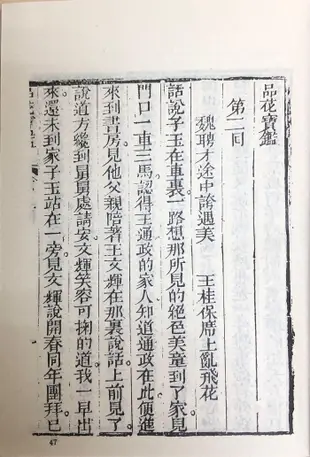 品花寶鑑
第二回
魏聘才途中誇遇美　王桂保席上亂飛花
話說子玉在車裏一路想那所見的絕色美童到了家見
門口一車三馬認得王通政的家人知道通政在此便進
來到書房見他父親陪著王文輝在那裏說話上前見了
說道方纔到舅舅處請安文輝笑容可掬的道我一早出
來還未到家子玉站在一旁見文輝說開春同年團拜已
47